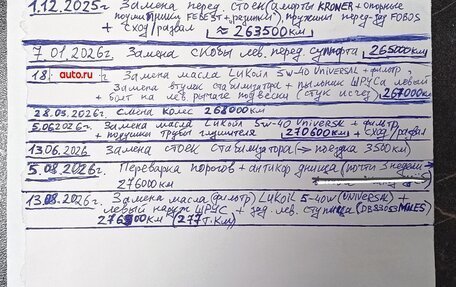 1.12.2025г. Замена перед. стоек (аморты KRONER + опорные
подшипники FEBEST + пружины перед-зад FOBOS
+ сход/развал ≈ 263500км
7.01.2026г. Замена скобы лев. перед. суппорта 265000км
18 auto.ru Замена масла Lukoil 5w-40 Universal + фильтр,
Замена втулок стабилизатора + пыльник ШРУСа левый
+ болт на лев рычаге подвески (стук исчез) 267000км
28.03.2026г. Смена колес 268000км
5.06.2026г. Замена масла Lukoil 5w-40 Univers + фильтр
+ подушки трубы глушителя 270600км + сход/развал
13.06.2026 Замена стоек стабилизатора (→ поездка 3500км)
5.08.2026г. Переварка порогов + антикор днища (почти 3 недели)
276000км
13.08.2026г. Замена масла (фильтр) Lukoil 5-40w (Universal) +
левый наруж ШРУС + зад. лев. ступица (DB53053 MILES)
276500км (277т.км)